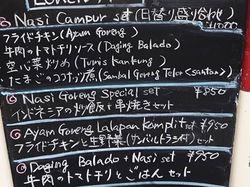 Nasi Campur set (日替り盛り合わせ)
フライドチキン (Ayam Goreng)
牛肉のトマトチリソース (Daging Balado)
空心菜炒め (Tumis Kankung)
たまごのココナッツ煮 (Sambal Goreng Telor <santan>)
Nasi Goreng Special set ¥850
インドネシアの炒飯と串焼きセット
Ayam Goreng Lalapan Komplit set ¥950
フライドチキンと生野菜(サンバルトラシ付)セット
Daging Balado + Nasi set ¥950
牛肉のトマトチリとごはん セット